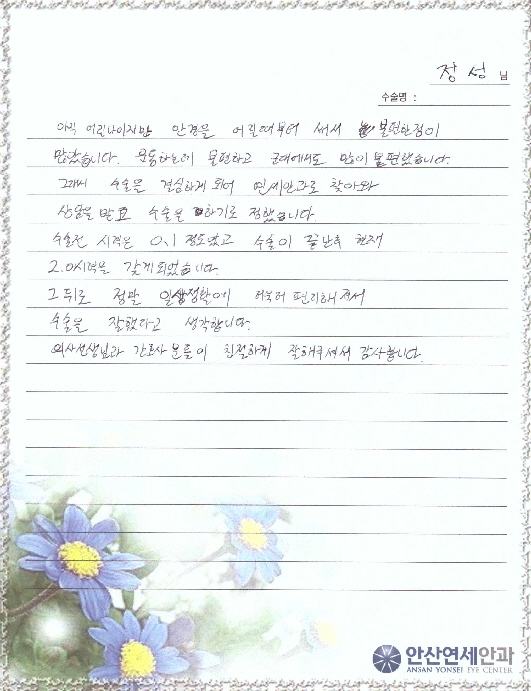 장 성 님
수술명 :
아직 어린나이지만 안경을 어릴때부터 써서 불편한점이
많았습니다. 운동하는데 불편하고 군대에서도 많이 불편했습니다.
그래서 수술을 결심하게 되어 연세안과로 찾아와
상담을 받고 수술을 하기로 정했습니다
수술전 시력은 0.1 정도였고 수술이 끝난후 현재
2.0시력을 갖게되었습니다.
그 뒤로 정말 일상생활에 더욱더 편리해져서
수술을 잘했다고 생각합니다.
의사선생님과 간호사 분들이 친절하게 잘해주셔서 감사합니다.
안산연세안과
ANSAN YONSEI EYE CENTER